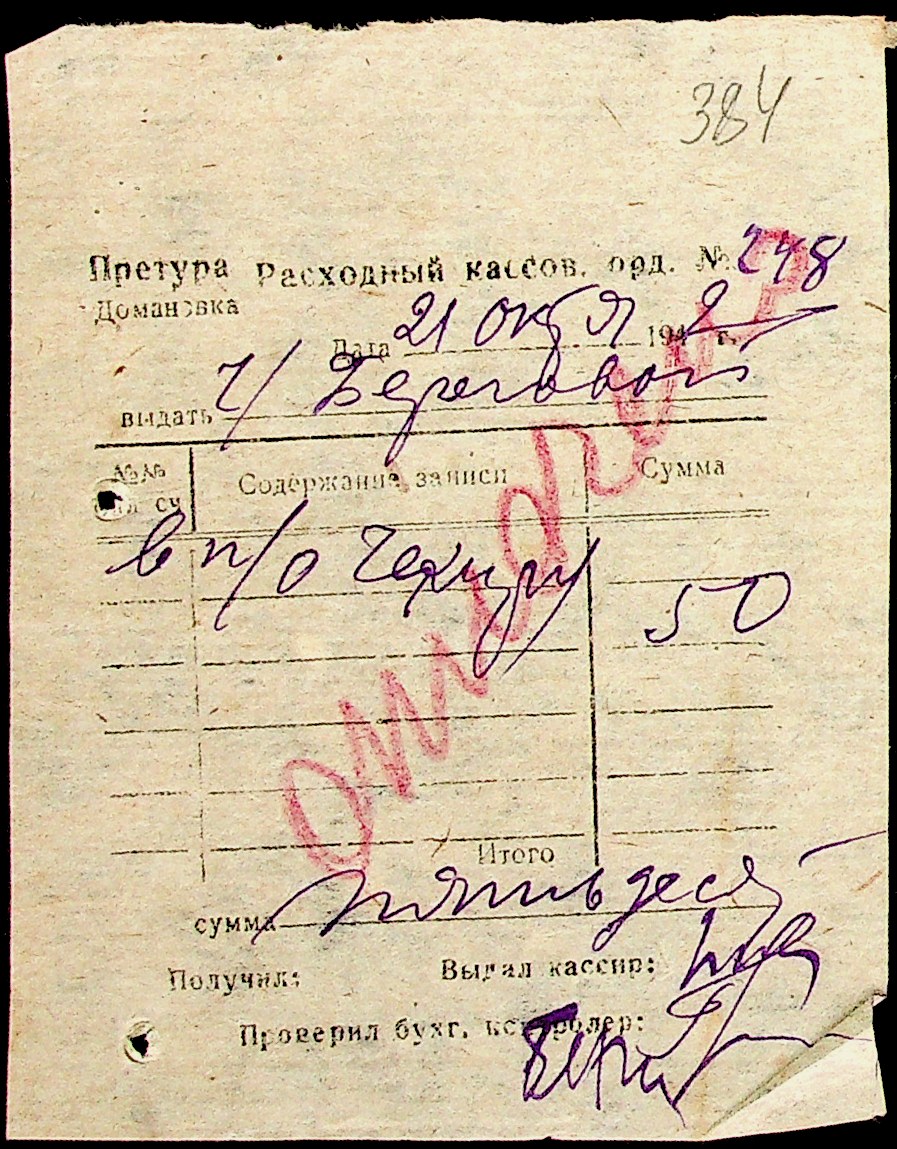 384
Претура Расходный кассов. орд. № 248
Домановка
Дата 21 октя 1942 г.
выдать ч/ Береговой
№№ Содержание записи Сумма
сч
в п/о 50
Итого
сумма пятьдесят
Получил: Выдал кассир:
Проверил бухг. контролер: